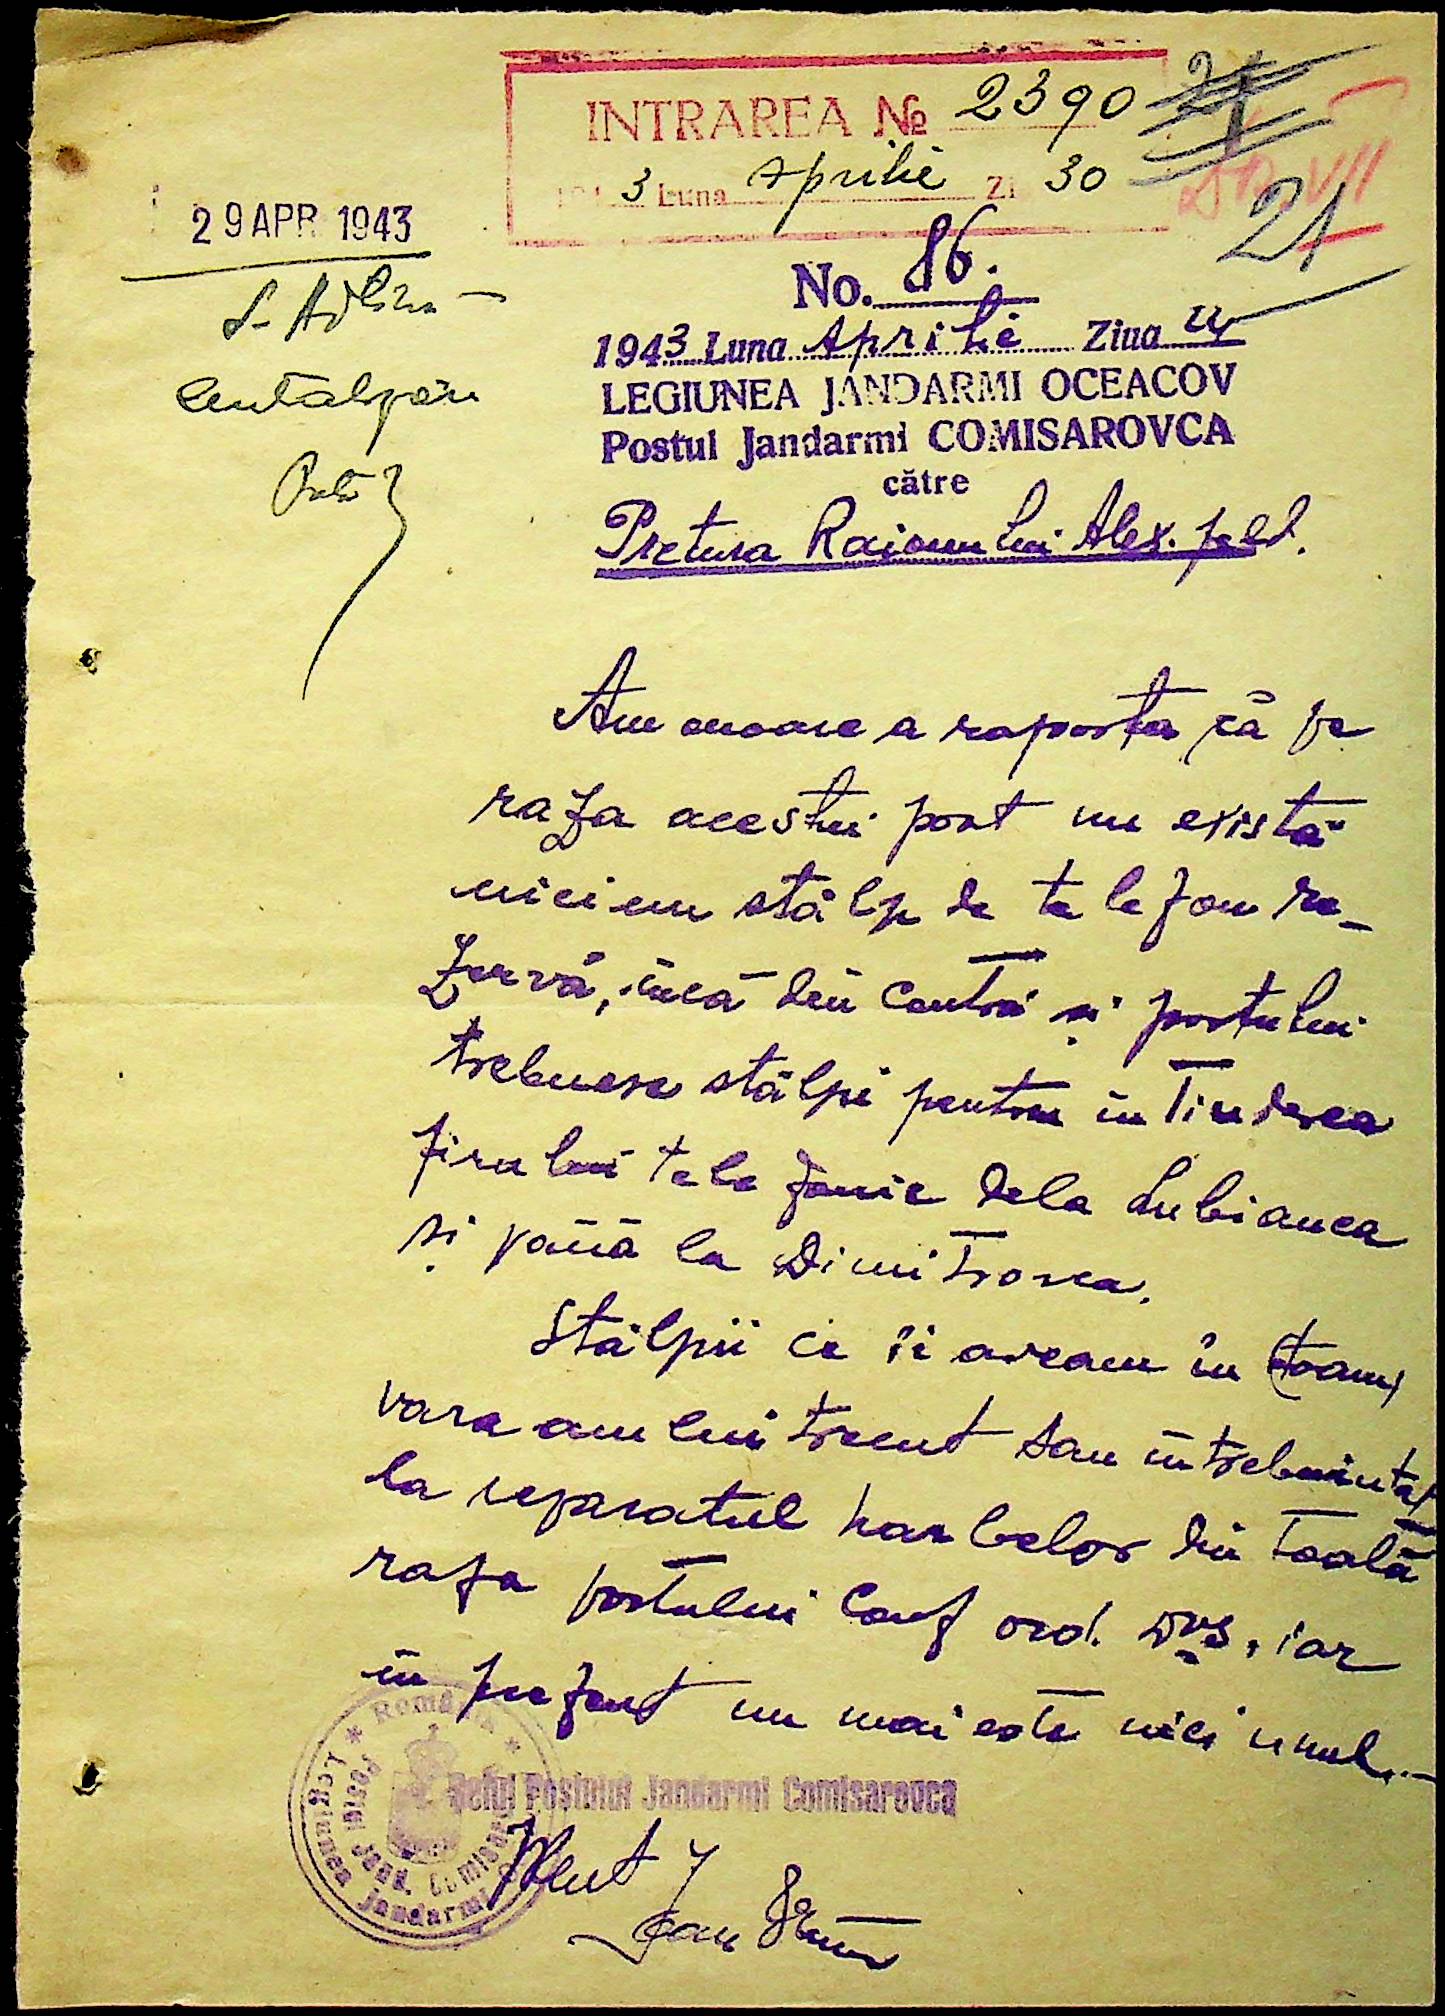 INTRAREA № 2390
3 Luna Aprilie Zi 30
21
21
29 APR 1943
No. 86.
1943 Luna Aprilie Ziua
LEGIUNEA JANDARMI OCEACOV
Postul Jandarmi COMISAROVCA
către
Pretura Raionului Alex. feld.
Am onoare a raporta că pe
raza acestui post nu există
nici un stâlp de telefon re-
zervă, încă din contră și postului
trebuesc stâlpi pentru întinderea
firului telefonic dela Lubianca
și până la Dimitrovca.
Stâlpii ce îi aveam în toam,
vara anului trecut sau întrebuințat
la reparatul harbelor din toată
raza postului conf ord. Dvs, iar
în prezent nu mai este nici unul.
Șeful Postului Jandarmi Comisarovca
România
Legiunea Jandarmi
Postul Jand. Comisarovca